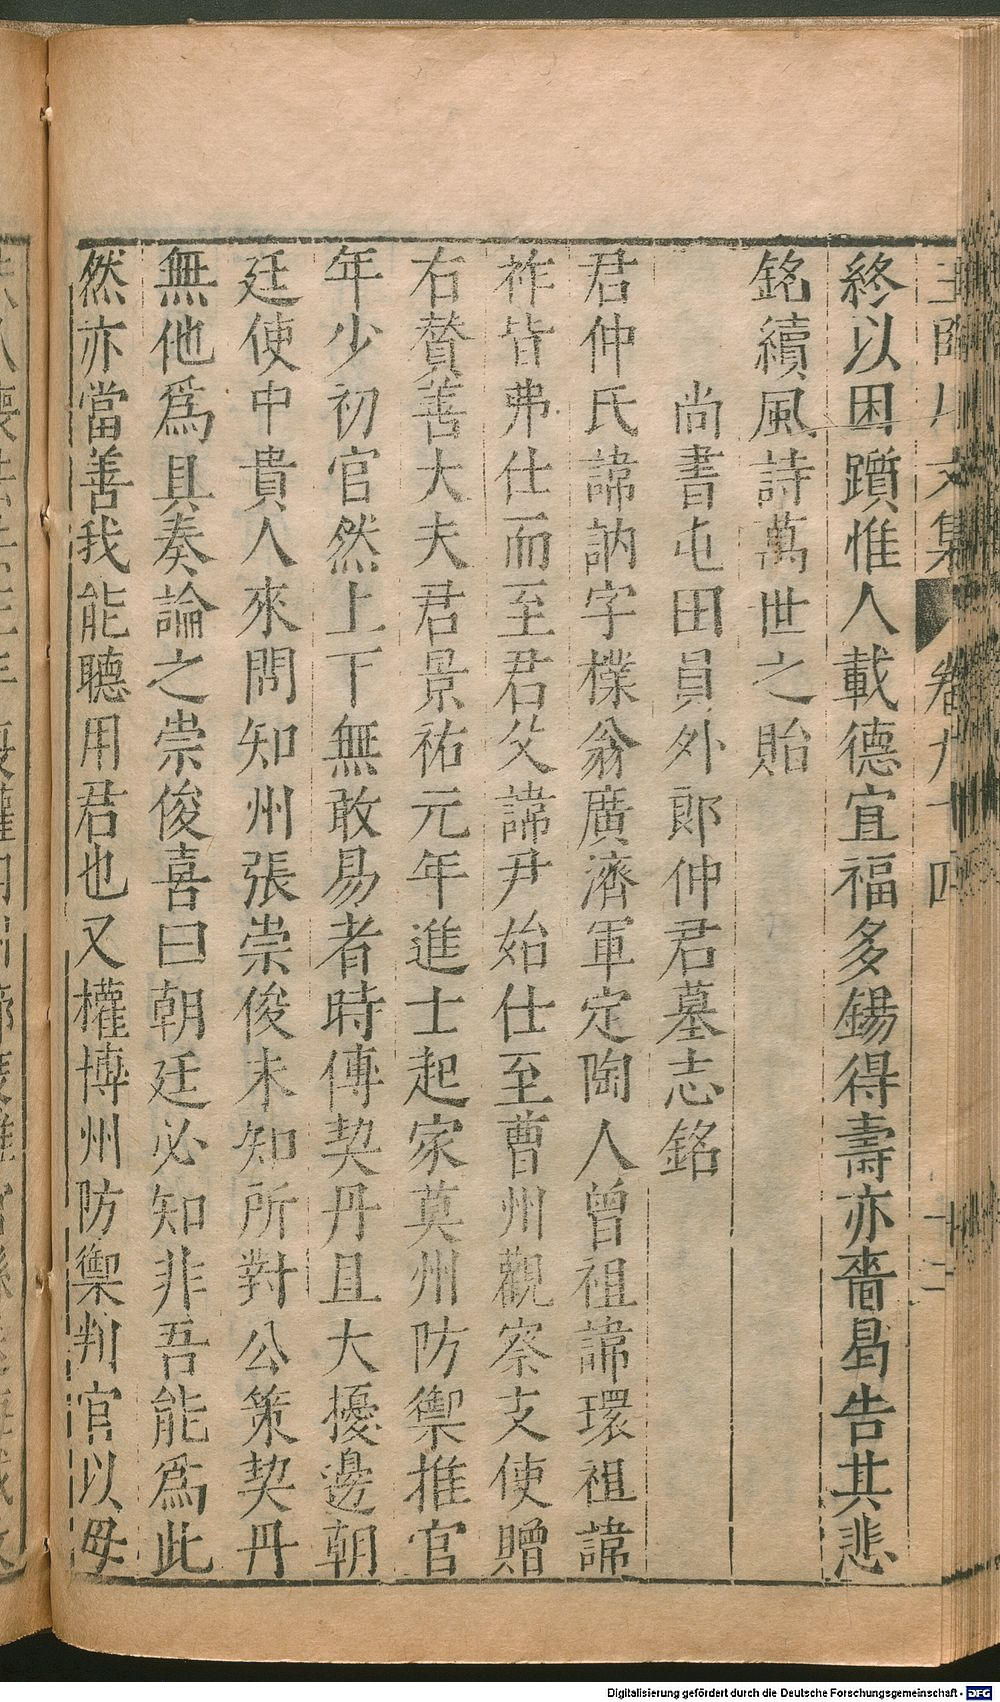 王臨川文集 卷九十四 十二
終以困躓惟人載德宜福多錫得壽亦嗇曷告其悲
銘續風詩萬世之貽
尚書屯田員外郎仲君墓志銘
君仲氏諱訥字樸翁廣濟軍定陶人曾祖諱環祖諱
祚皆弗仕而至君父諱尹始仕至曹州觀察支使贈
右贊善大夫君景祐元年進士起家莫州防禦推官
年少初官然上下無敢易者時傳契丹且大擾邊朝
廷使中貴人來問知州張崇俊未知所對公策契丹
無他爲具奏論之崇俊喜曰朝廷必知非吾能爲此
然亦當善我能聽用君也又權博州防禦判官以母
Digitalisierung gefördert durch die Deutsche Forschungsgemeinschaft - DFG